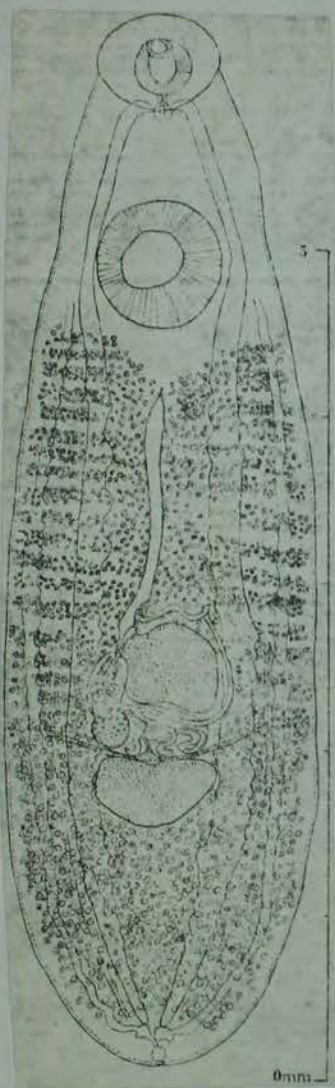 5
0mm